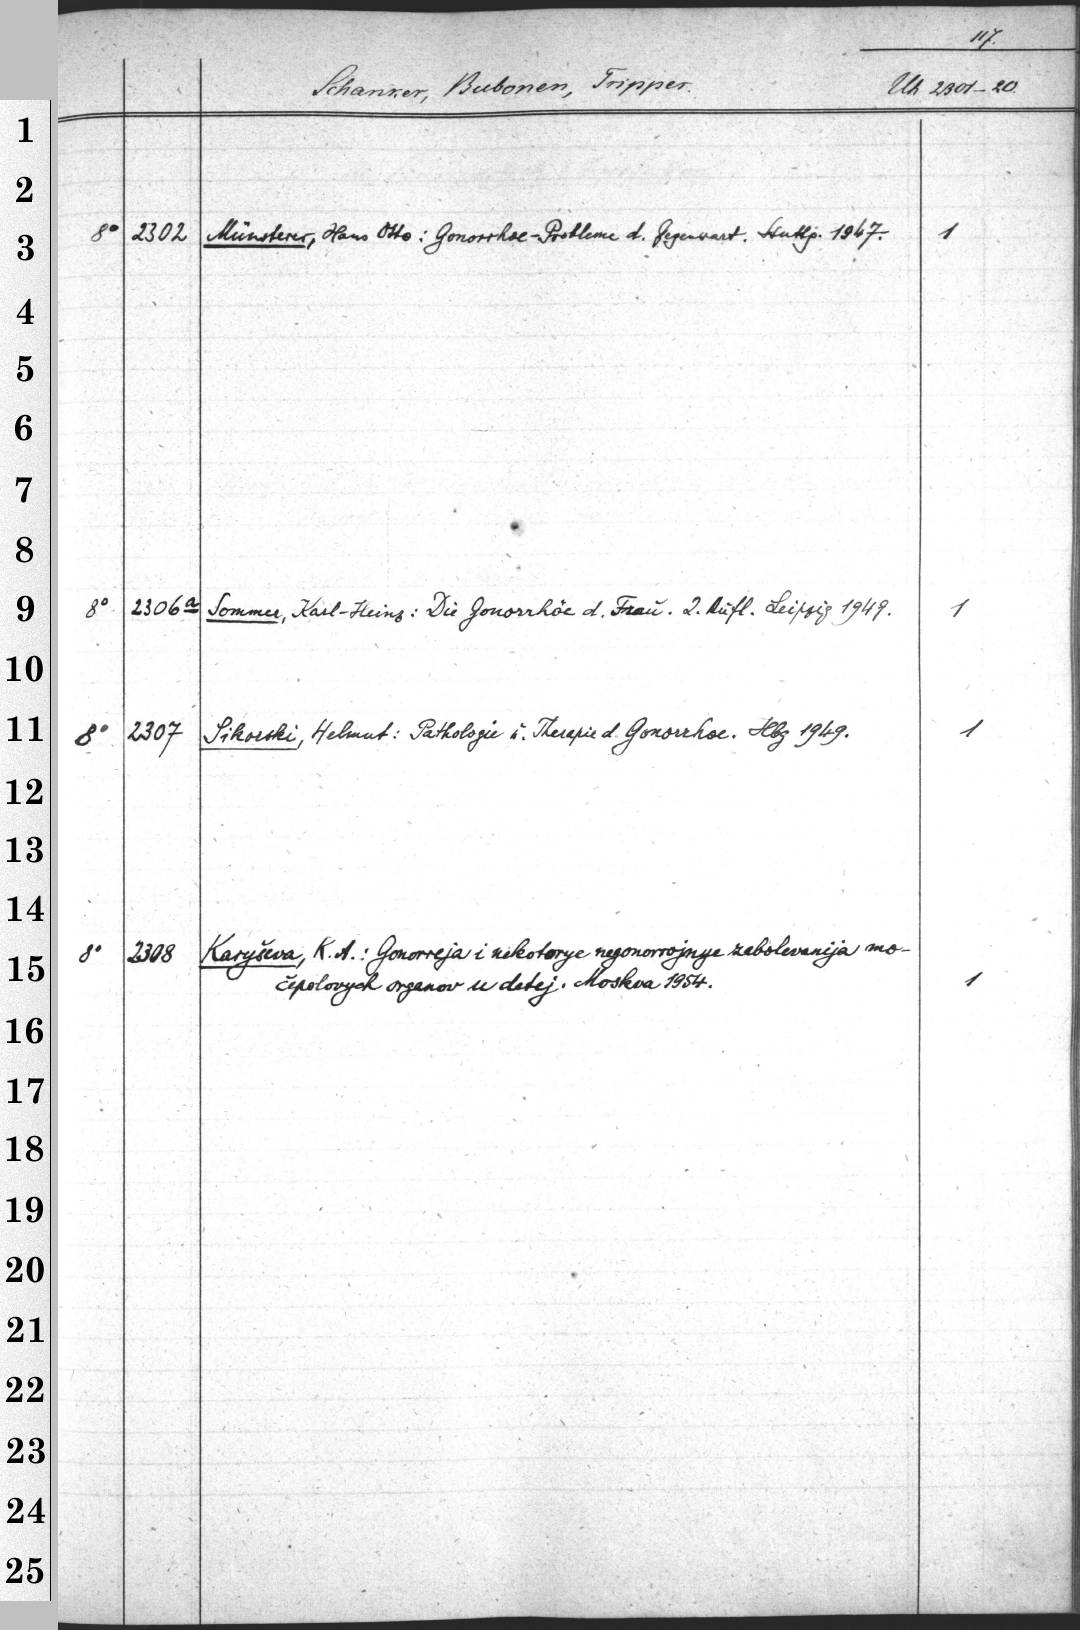 117.
Schanker, Bubonen, Tripper. Uh 2301-20.
1
2
3 8° 2302 Münsterer, Hans Otto: Gonorrhoe-Probleme d. Gegenwart. Stuttg. 1947. 1
4
5
6
7
8
9 8° 2306a Sommer, Karl-Heinz: Die Gonorrhöe d. Frau. 2. Aufl. Leipzig 1949. 1
10
11 8° 2307 Sikorski, Helmut: Pathologie u. Therapie d. Gonorrhoe. Hbg 1949. 1
12
13
14
15 8° 2308 Karyševa, K.A.: Gonorreja i nekotorye negonorrojnye zabolevanija mo-
čepolovych organov u detej. Moskva 1954. 1
16
17
18
19
20
21
22
23
24
25